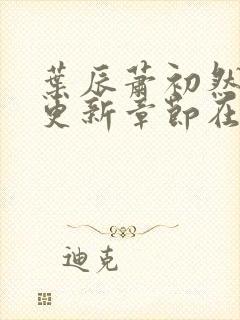 葉辰蕭初然
更新章節在
迪克